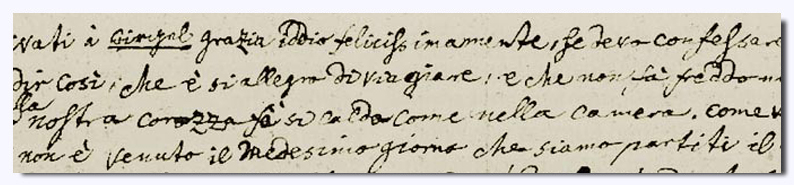 vati à Wirgel grazia iddio felicissimamente, se devo confessare
dir cosi, che è si allegro di viagiare, e che non fà freddo
la nostra carozza fà si caldo come nella camera. come
non è venuto il medesimo giorno che siamo partiti il